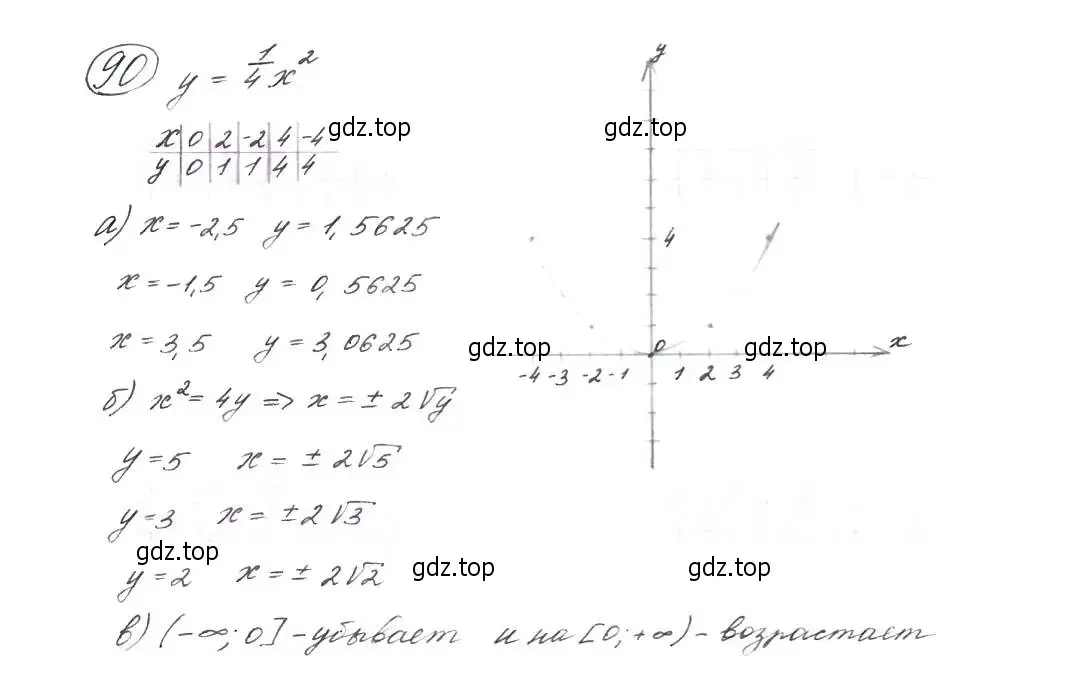 90 y = 1/4 x²
x | 0 | 2 | -2 | 4 | -4
y | 0 | 1 | 1 | 4 | 4
gdz.top
а) x = -2,5 y = 1,5625
x = -1,5 y = 0,5625
x = 3,5 y = 3,0625
б) x² = 4y => x = ± 2√y
y = 5 x = ± 2√5
y = 3 x = ± 2√3
gdz.top
y = 2 x = ± 2√2
gdz.top
в) (-∞; 0] - убывает и на [0; +∞) - возрастает
y
gdz.top
4
gdz.top
0
gdz.top
x
-4 -3 -2 -1 1 2 3 4
gdz.top